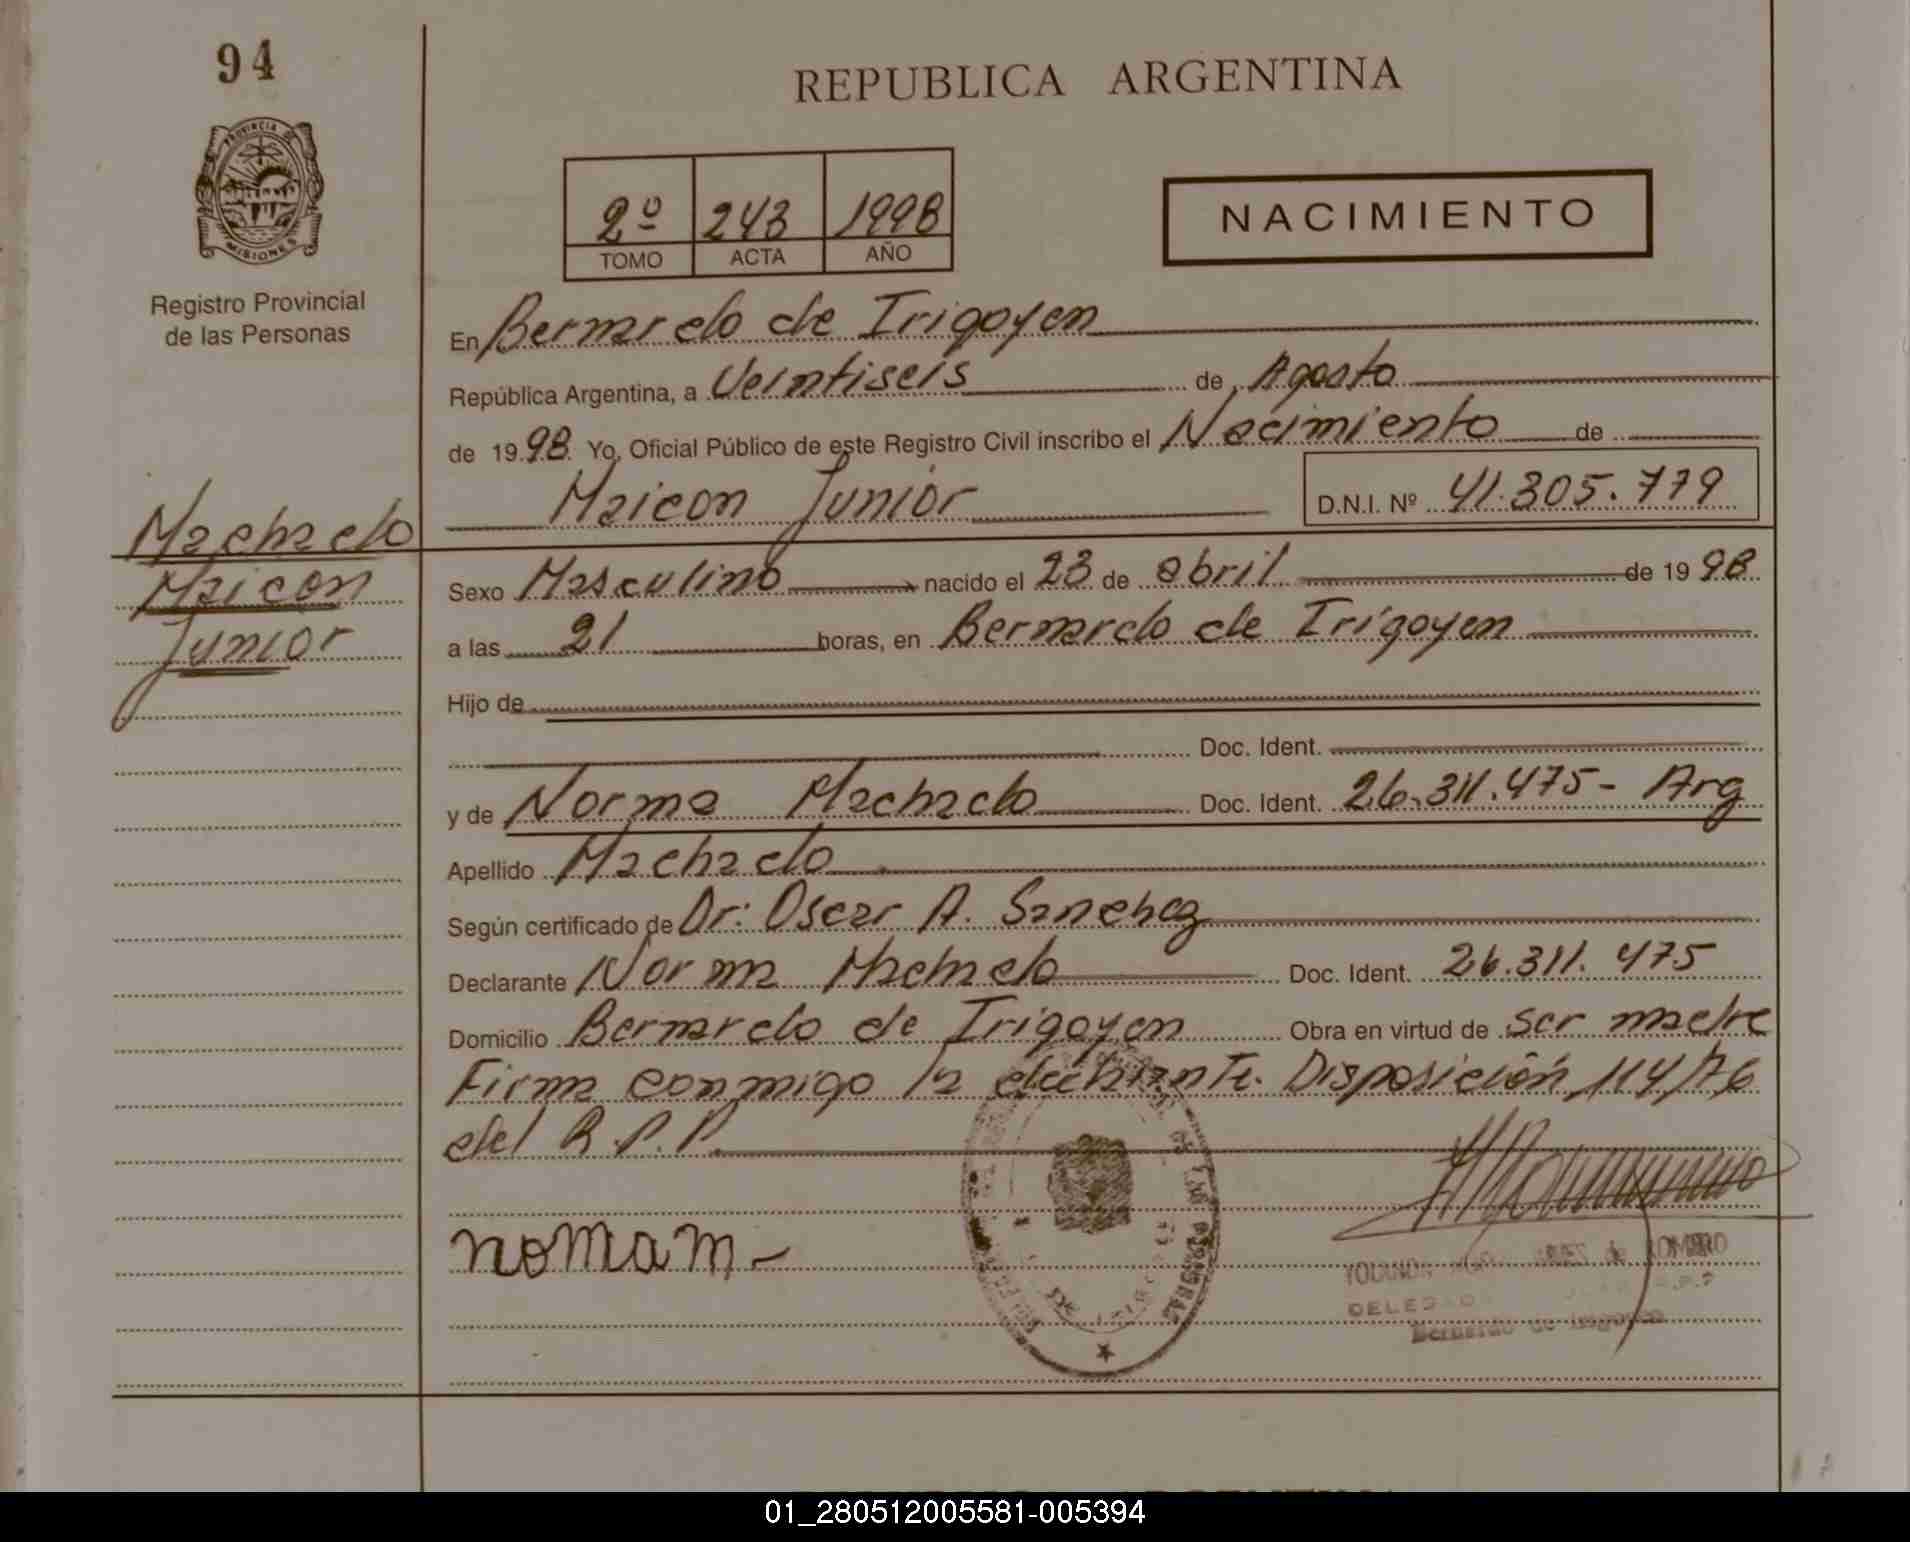 94
REPUBLICA ARGENTINA
PROVINCIA DE
MISIONES
2º 243 1998
TOMO ACTA AÑO
NACIMIENTO
Registro Provincial
de las Personas
En Bernardo de Irigoyen
República Argentina, a Veintiseis de Agosto
de 1998 Yo, Oficial Público de este Registro Civil inscribo el Nacimiento de
Maicon Junior D.N.I. Nº 41.305.779
Machado
Maicon
Junior
Sexo Masculino nacido el 23 de abril de 1998
a las 21 horas, en Bernardo de Irigoyen
Hijo de
Doc. Ident.
y de Norma Machado Doc. Ident. 26.311.475- Arg
Apellido Machado
Según certificado de Dr: Oscar A. Sanchez
Declarante Norma Machado Doc. Ident. 26.311.475
Domicilio Bernardo de Irigoyen Obra en virtud de ser madre
Firma conmigo la declarante. Disposición 114/76
del R.P.P.
nomam-
DE LAS PERSONAS
YOLANDA de ROMERO
DELEGADA
Bernardo de Irigoyen
01_280512005581-005394